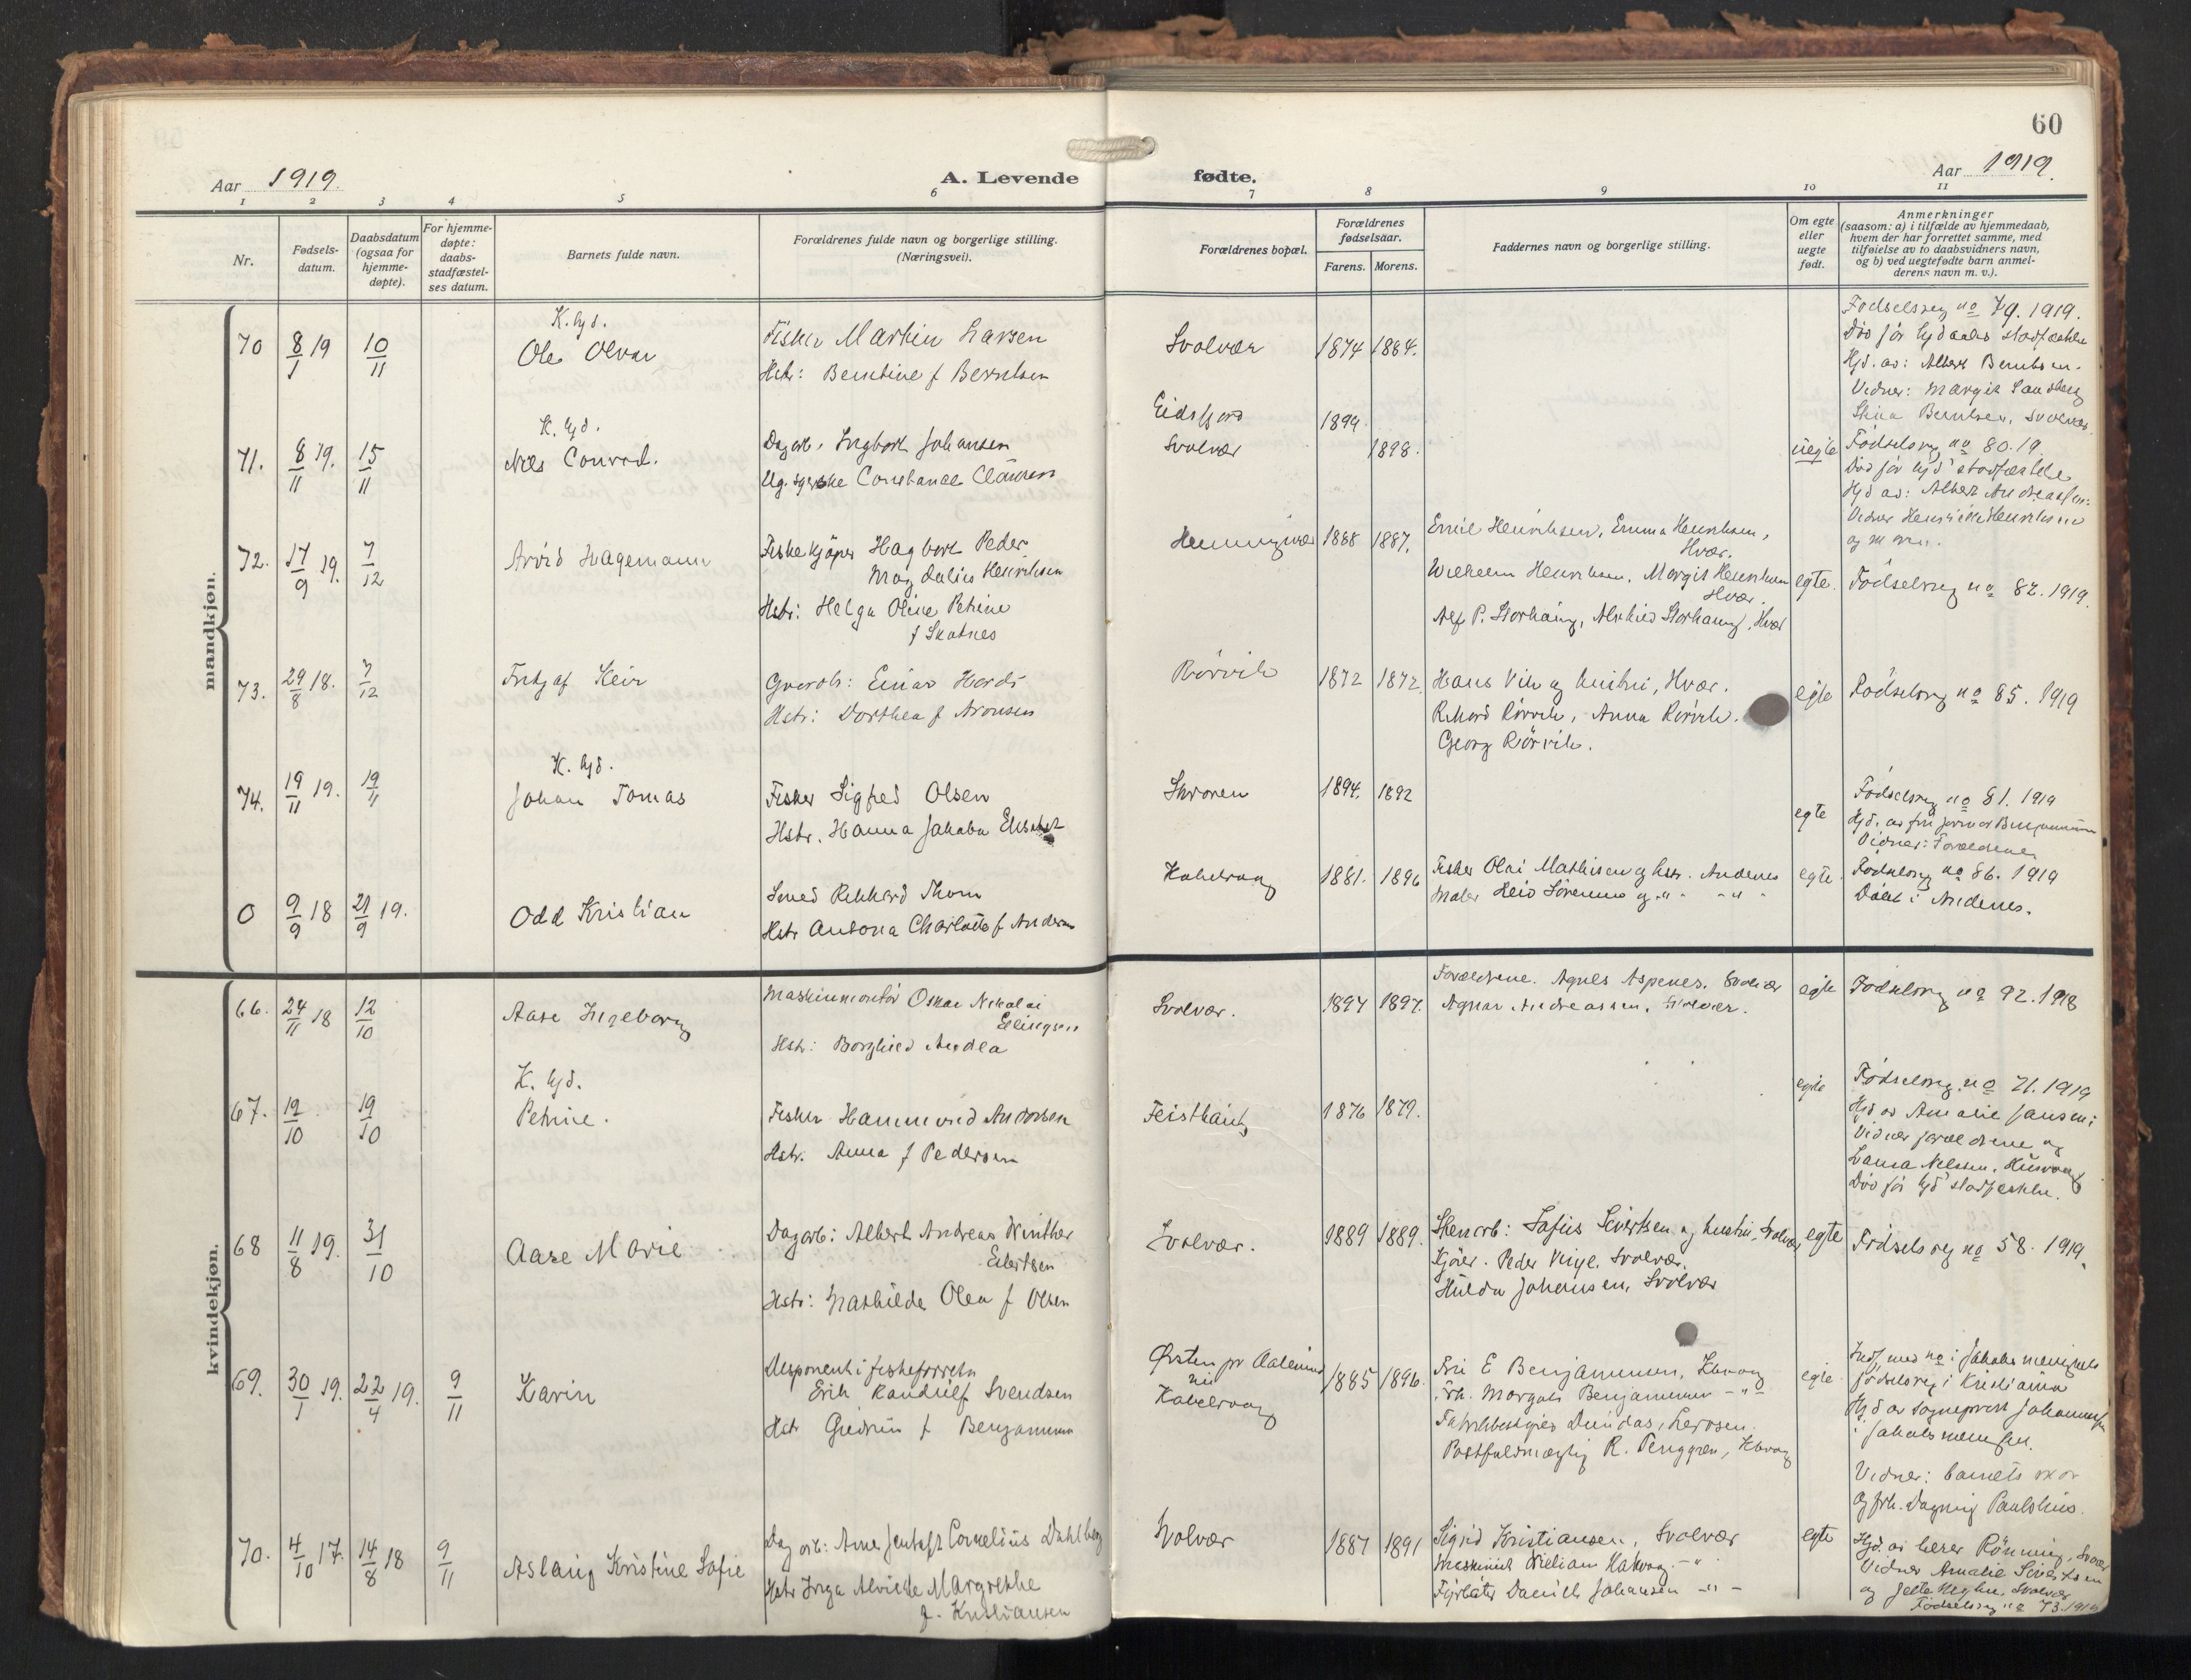 60
Aar 1919.
A. Levende
fødte.
Aar 1919.
1 2 3 4 5 6 7 8 9 10 11
Nr.
Fødsels-
datum.
Daabsdatum
(ogsaa for
hjemme-
døpte).
For hjemme-
døpte:
daabs-
stadfæstel-
ses datum.
Barnets fulde navn.
Forældrenes fulde navn og borgerlige stilling.
(Næringsvei).
Forældrenes bopæl.
Forældrenes
fødselsaar.
Farens. Morens.
Faddernes navn og borgerlige stilling.
Om egte
eller
uegte
født.
Anmerkninger
(saasom: a) i tilfælde av hjemmedaab,
hvem der har forrettet samme, med
tilføielse av to daabsvidners navn,
og b) ved uegtefødte barn anmel-
derens navn m. v.).
mandkjøn.
K. hjd.
70 8/1 19 10/11 Ole Olvar
Fisker Martin Larsen
Hstr: Berntine f Berntsen
Svolvær 1874 1884.
Fødselsreg no 79. 1919.
Død før hjdaabs stadfæstelse
Hjd. av: Albert Berntsen.
Vidner: Margit Sandberg
Stina Berntsen, Svolvær
K. hjd.
71. 8/11 19. 15/11 Nils Conrad.
Dagarb. Ingbort Johansen
Ug. syerske Constance Clausen
Eidsfjord 1894
Svolvær 1898.
uegte
Fødselsreg no 80. 19.
Død før hjd' stadfæstelse
Hjd av: Albert Andreassen:
Vidner Henriette Henriksen
72. 17/9 19. 7/12 Arvid Hagemann
Fiskekjøper Hagbort Peder
Magdalius Henriksen
Hstr: Helga Oline Petrine
f Skatnes
Henningsvær 1888 1887.
Emil Henriksen, Emma Henriksen,
Hvær.
Wilhelm Henriksen, Margit Henriksen
Hvær.
Alf P. Storhaug, Storhaug, Hvær
egte.
Fødselsreg no 82. 1919.
73. 29/8 18. 7/12 Fritjof Keir
Gaardb: Einar Hardi
Hstr: Dorthea f Aronsen
Rörvik 1872 1872.
Hans Vik og hustru, Hvær.
Rikard Rörvik, Anna Rörvik.
Georg Rörvik.
egte
Fødselsreg no 85. 1919
K. hjd.
74. 19/11 19. 19/11 Johan Tomas
Fisker Sigfred Olsen
Hstr. Hanna Jakoba Elisabet
Skroven 1894. 1892
egte
Fødselsreg no 81. 1919
Hjd. av fru jormor Benjaminsen
Vidner: Forældrene
0 9/9 18 21/9 19. Odd Kristian
Smed Rikhard Thom
Hstr Antona Charlotte f Andersen
Kabelvaag 1881. 1896
Fisker Olai Mathisen og hstr. Andenes
Maler Leid Sørensen og " " - " -
egte.
Fødselsreg no 86. 1919
Døbt i Andenes.
kvindekjøn.
66. 24/11 18 12/10 Aase Ingeborg
Maskinmontör Oskar Nikolai
Ellingsen
Hstr: Borghild Andea
Svolvær. 1897 1897.
Forældrene. Agnes Aspenes. Svolvær
Agnar Andreassen, Svolvær.
egte
Fødselsreg no 92. 1918
K. hjd.
67. 19/10 19/10 Petrine.
Fisker Hammond Andorsen
Hstr. Anna f Pedersen
1876 1879.
egte
Fødselsreg. no 71. 1919
Hjd av Amalie Jansen:
Vidner forældrene og
Laura Nilssen, Husvaag
Død før hjd' stadfæstelse.
68 11/8 19. 31/10 Aase Marie
Dagarb: Albert Andreas Winther
Eilertsen
Hstr: Mathilde Olea f Olsen
Svolvær. 1889 1889.
Stenarb: Sofus Sivertsen og hustru, Svolvær
Kjører. Peder Vinje. Svolvær.
Hulda Johansen, Svolvær
egte
Fødselsreg no 58. 1919.
69. 30/1 19. 22/4 19. 9/11 Karin
Disponent i fiskeforretn
Erik Randulf Svendsen
Hstr Gudrun f Benjaminsen
Ørsten pr Aalesund
nu
Kabelvaag
1885 1896.
Fru E Benjaminsen, Kbvaag
Frk. Margot Benjaminsen - " -
Fabrikbestyrer Dundas, Lerosen.
Postfuldmægtig R. Tenggren, Kbvaag
egte
Indf. med no i Jakobs menigheds
fødselsreg i Kristiania
Hjd av sogneprest Johannesen
i Jakobs menighet.
Vidner: barnets mor
og frk. Dagny Paulshus.
70. 4/10 17. 14/8 18 9/11 Aslaug Kristine Sofie
Dag arb: Arne Jentoft Cornelius Dahlberg
Hstr Inga Alvilde Margrethe
f. Kristiansen
Svolvær 1887 1891
Sigrid Kristiansen, Svolvær
Maskinist William Hakvaag - "
Fyrbøter Daniel Johansen - " -
egte
Hjd. av lærer Rönning, Svolvær
Vidner Amalie Sivertsen
Fødselsreg no 73. 1919